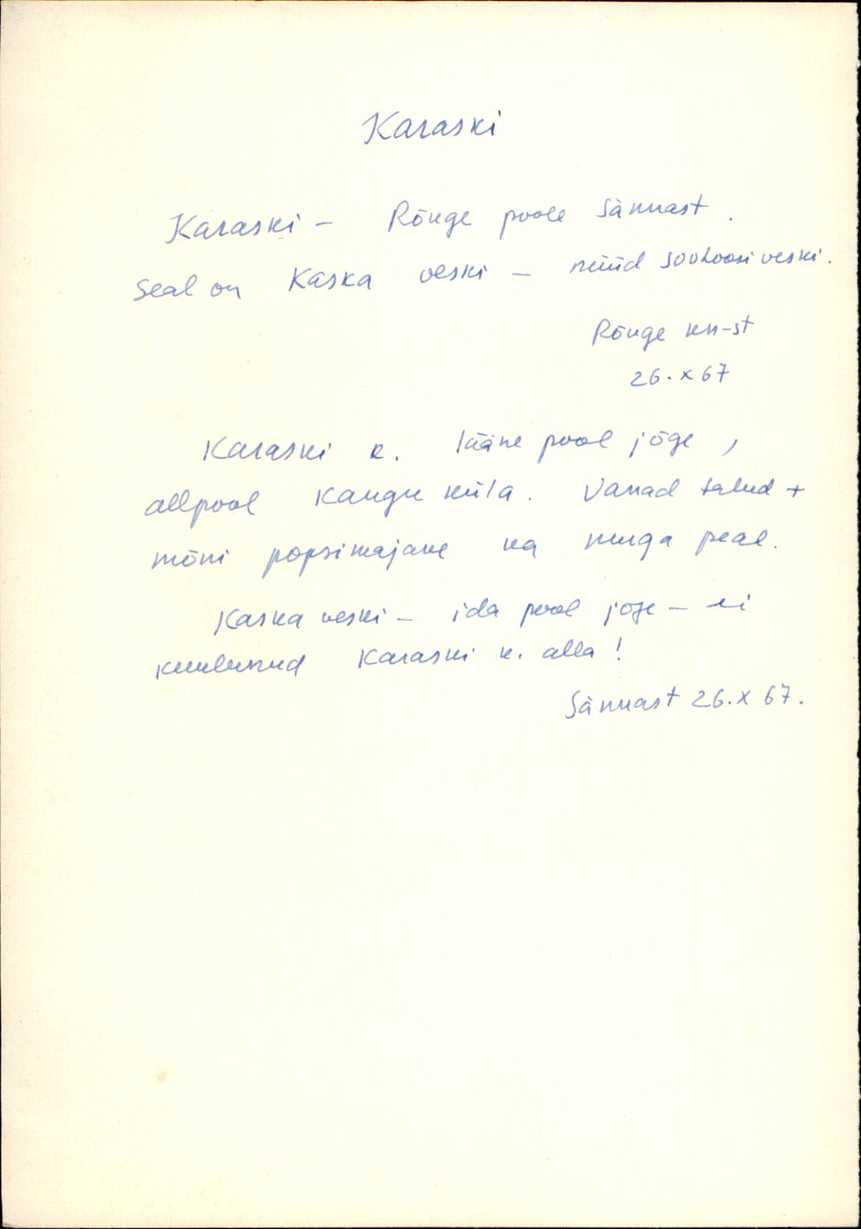 Karaski
Karaski – Rõuge poole Sännast.
Seal on Kaska veski – nüüd sovhoosi veski.
Rõuge kn-st
26. X 67
Karaski k. lääne pool jõge,
allpool Kangru küla. Vanad talud +
mõni popsimajake ka nurga peal.
Kaska veski – ida pool jõge – ei
kuulunud Karaski k. alla!
Sännast 26. X 67.